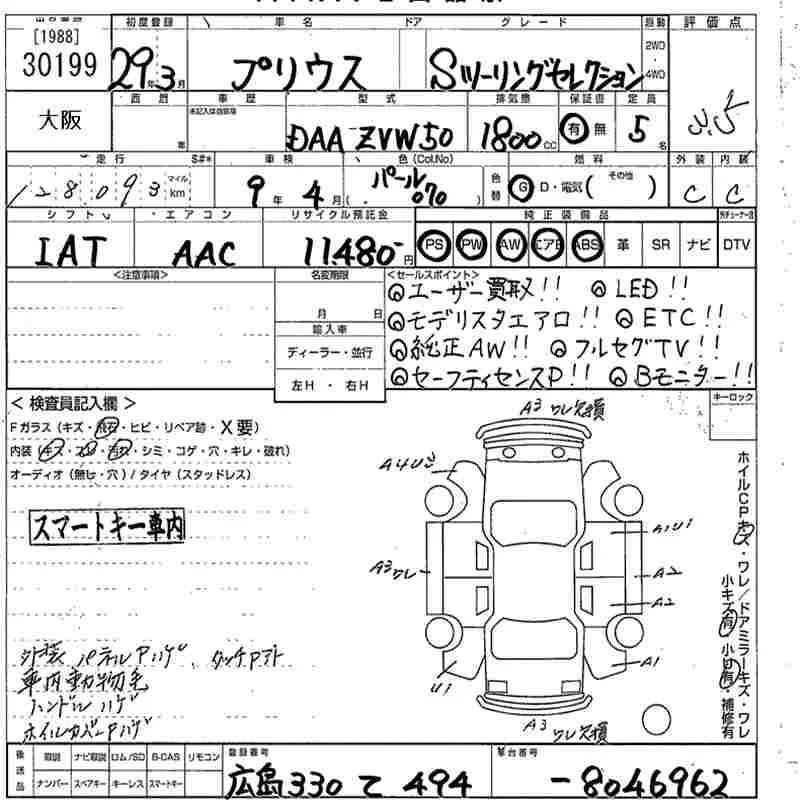 [1988]
30199
初度登録 車名 ドア グレード 駆動 評価点
29年3月 プリウス Sツーリングセレクション 2WD・4WD 3.5
大阪
西暦 車歴 型式 排気量 保証書 定員
年 未記入は自家用 DAA ZVW50 1800CC 有 無 5名
走行 S#* 車検 色(Col.No) 燃料 外装 内装
128,093 マイル km 9年 4月 (パール 070) 色替 G・D・電気( その他 ) C C
シフト エアコン リサイクル預託金 純正装備品
IAT AAC 11480-円 PS PW AW エアB ABS 革 SR ナビ DTV
<注意事項> 名変期限 <セールスポイント>
月 日
輸入車
ディーラー・並行
左H ・ 右H
◎ユーザー買取!! ◎LED!!
◎モデリスタエアロ!! ◎ETC!!
◎純正AW!! ◎フルセグTV!!
◎セーフティセンスP!! ◎Bモニター!!
キーロック
<検査員記入欄>
Fガラス(キズ・飛石・ヒビ・リペア跡・X要)
内装(キズ・スレ・汚れ・シミ・コゲ・穴・キレ・破れ)
オーディオ(無し・穴)/タイヤ(スタッドレス)
スマートキー車内
A3 ワレ欠損
A4U3
A3 ワレ
A1U1
A2
A2
A1
U1
A3 ワレ欠損
ホイルCPキズ・ワレ/ドアミラーキズ・ワレ
小キズ有・小U有・補修有
外装 パネルPハゲ、タッチPアト
車内動物毛
ハンドルハゲ
ホイルカバーPハゲ
後送品 取説 ナビ取説 ロム/SD B-CAS リモコン 登録番号 車台番号
ナンバー スペアキー キーレス スマートキー 広島 330 て 494 -8046962